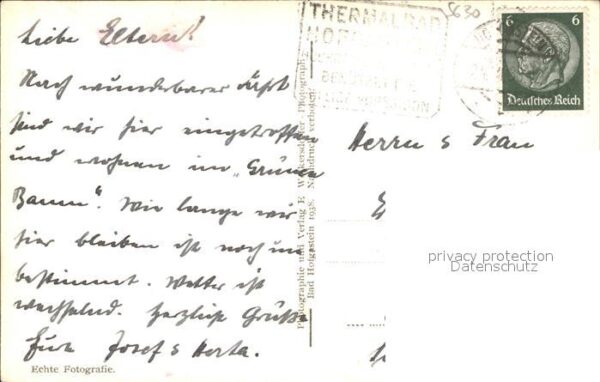 Liebe Eltern!
Nach wunderbarer Fahrt
sind wir hier eingetroffen
und wohnen im „Grünen
Baum". Wie lange wir
hier bleiben ist noch un
bestimmt. Wetter ist
wechselnd. Herzliche Grüße
Eure Josef & Herta.
Echte Fotografie.
Photographie und Verlag E.
Bad Hofgastein 1938. Nachdruck verboten!
THERMALBAD
5630
6 6
Deutsches Reich
Herrn & Frau
privacy protection
Datenschutz